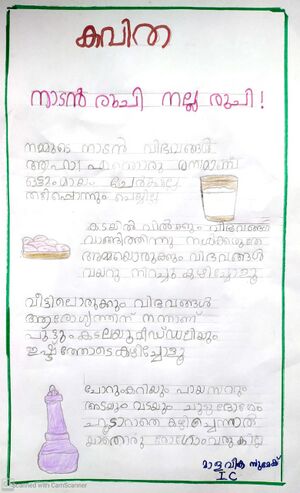 കവിത
നാടൻ രുചി നല്ല രുചി!
നമ്മുടെ നാടൻ വിഭവങ്ങൾ
ആഹാ! എന്തൊരു
ഒട്ടും മായം ചേർക്കല്ലേ
കടയിൽ വിൽക്കും വിഭവങ്ങൾ
വാങ്ങിത്തിന്നു നടക്കരുതേ
അമ്മയൊരുക്കും വിഭവങ്ങൾ
വയറു നിറച്ചു കഴിച്ചോളൂ
വീട്ടിലൊരുക്കും വിഭവങ്ങൾ
ആരോഗ്യത്തിന് നന്നാണ്
പുട്ടും കടലയുമിഡ്ഡലിയും
ഇഷ്ടത്തോടെ കഴിച്ചോളൂ
ചോറും കറിയും പായസവും
അടയും വടയും
കഴിച്ചെന്നാൽ
യാതൊരു രോഗോം വരുകില്ല
മാളവിക സുമേഷ്
I C
Scanned with CamScanner